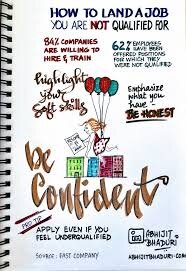 HOW TO LAND A JOB
YOU ARE NOT QUALIFIED FOR
84% COMPANIES
ARE WILLING
TO HIRE & TRAIN
62% EMPLOYEES
HAVE BEEN
OFFERED POSITIONS
FOR WHICH THEY
WERE NOT QUALIFIED
highlight
your
soft skills
Emphasize
what you
have -
BE HONEST
be
Confident
PRO TIP
APPLY EVEN IF YOU
FEEL UNDERQUALIFIED
SOURCE: FAST COMPANY
ABHIJIT
BHADURI
ABHIJITBHADURI.COM